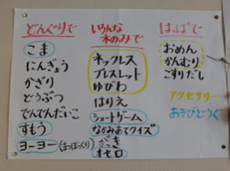 どんぐりで
こま
にんぎょう
かざり
どうぶつ
でんでんだいこ
すもう
ヨーヨー(まつぼっくり)
いろんな
木のみで
ネックレス
ブレスレット
ゆびわ
はりえ
シュートゲーム
なかみあてクイズ
がっき
オセロ
はっぱで
おめん
かんむり
こすりだし
アクセサリー
あそびどうぐ